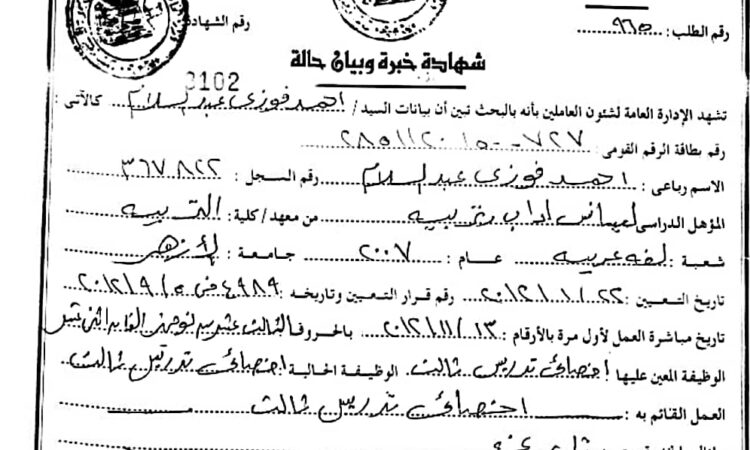 رقم الطلب : ٩٦٥
رقم الشهادة
شهادة خبرة وبيان حالة
3102
تشهد الإدارة العامة لشئون العاملين بأنه بالبحث تبين أن بيانات السيد / احمد فوزى عبد السلام كالآتى :
رقم بطاقة الرقم القومى : ٢٨٥١١٢٠١٥٠٠٧٢٧
الاسم رباعى : احمد فوزى عبد السلام رقم السجل : ٣٦٧٨٢٢
المؤهل الدراسى : ليسانس اداب وتربيه من معهد / كلية : التربيه
شعبة : لغه عربيه عام : ٢٠٠٧ جامعة : الأزهر
تاريخ التعيين : ٢٠١٢/١٠/٢٢ رقم قرار التعيين وتاريخه : ٤٩٨٩ فى ٢٠١٢/٩/٥
تاريخ مباشرة العمل لأول مرة بالأرقام : ٢٠١٢/١١/١٣ بالحروف الثالث عشر من نوفمبر الفان اثنى عشر
الوظيفة المعين عليها : اخصائى تدريس ثالث الوظيفة الحالية : اخصائى تدريس ثالث
العمل القائم به : اخصائى تدريس ثالث